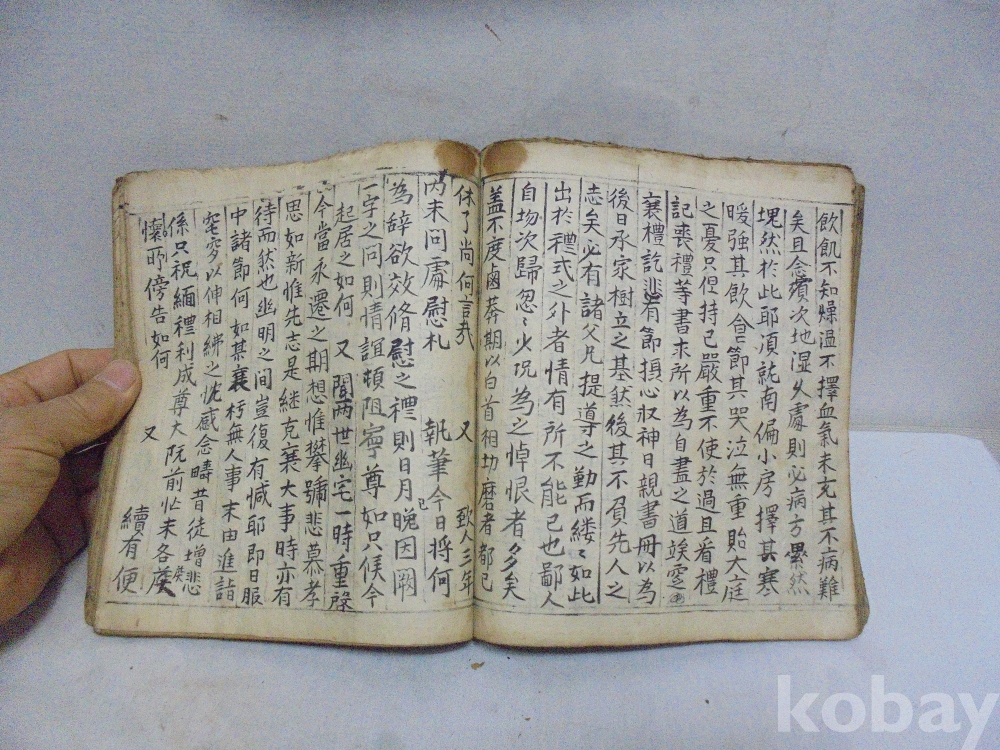 飲飢不知燥温不擇血氣未充其不病難
矣且念殯次地湿久處則必病方累然
塊然於此耶須就南偏小房擇其寒
暖强其飮食節其哭泣無重貽大庭
之憂只恒持己嚴重不使於過且看禮
記喪禮等書求所以為自盡之道竢
襄禮訖有節損心収神日親書冊以為
後日承家樹立之基然後其不負先人之
志矣必有諸父兄提導之勤而縷〻如此
出於禮式之外者情有所不能已也鄙人
自幼次歸忽〻少况為之悼恨者多矣
盖不度鹵莽期以白首相切磨者都已
休了尚何言哉 又 致人三年
内未問處慰札 執筆今日將何
為辭欲效脩慰之禮則日月已晚因闕
一字之問則情誼頓阻寧尊如只候今
起居之如何 又 聞兩世幽宅一時重祿
今當永遷之期想惟攀號悲慕孝
思如新惟先志是継克襄大事時亦有
待而然也幽明之間豈復有憾耶即日服
中諸節何如某襄朽無人事末由進詣
窀穸以伸相紼之忱感念疇昔徒增悲
係只祝緬禮利成尊大阮前忙未各候
懷昞傍告如何 又 續有便
kobay